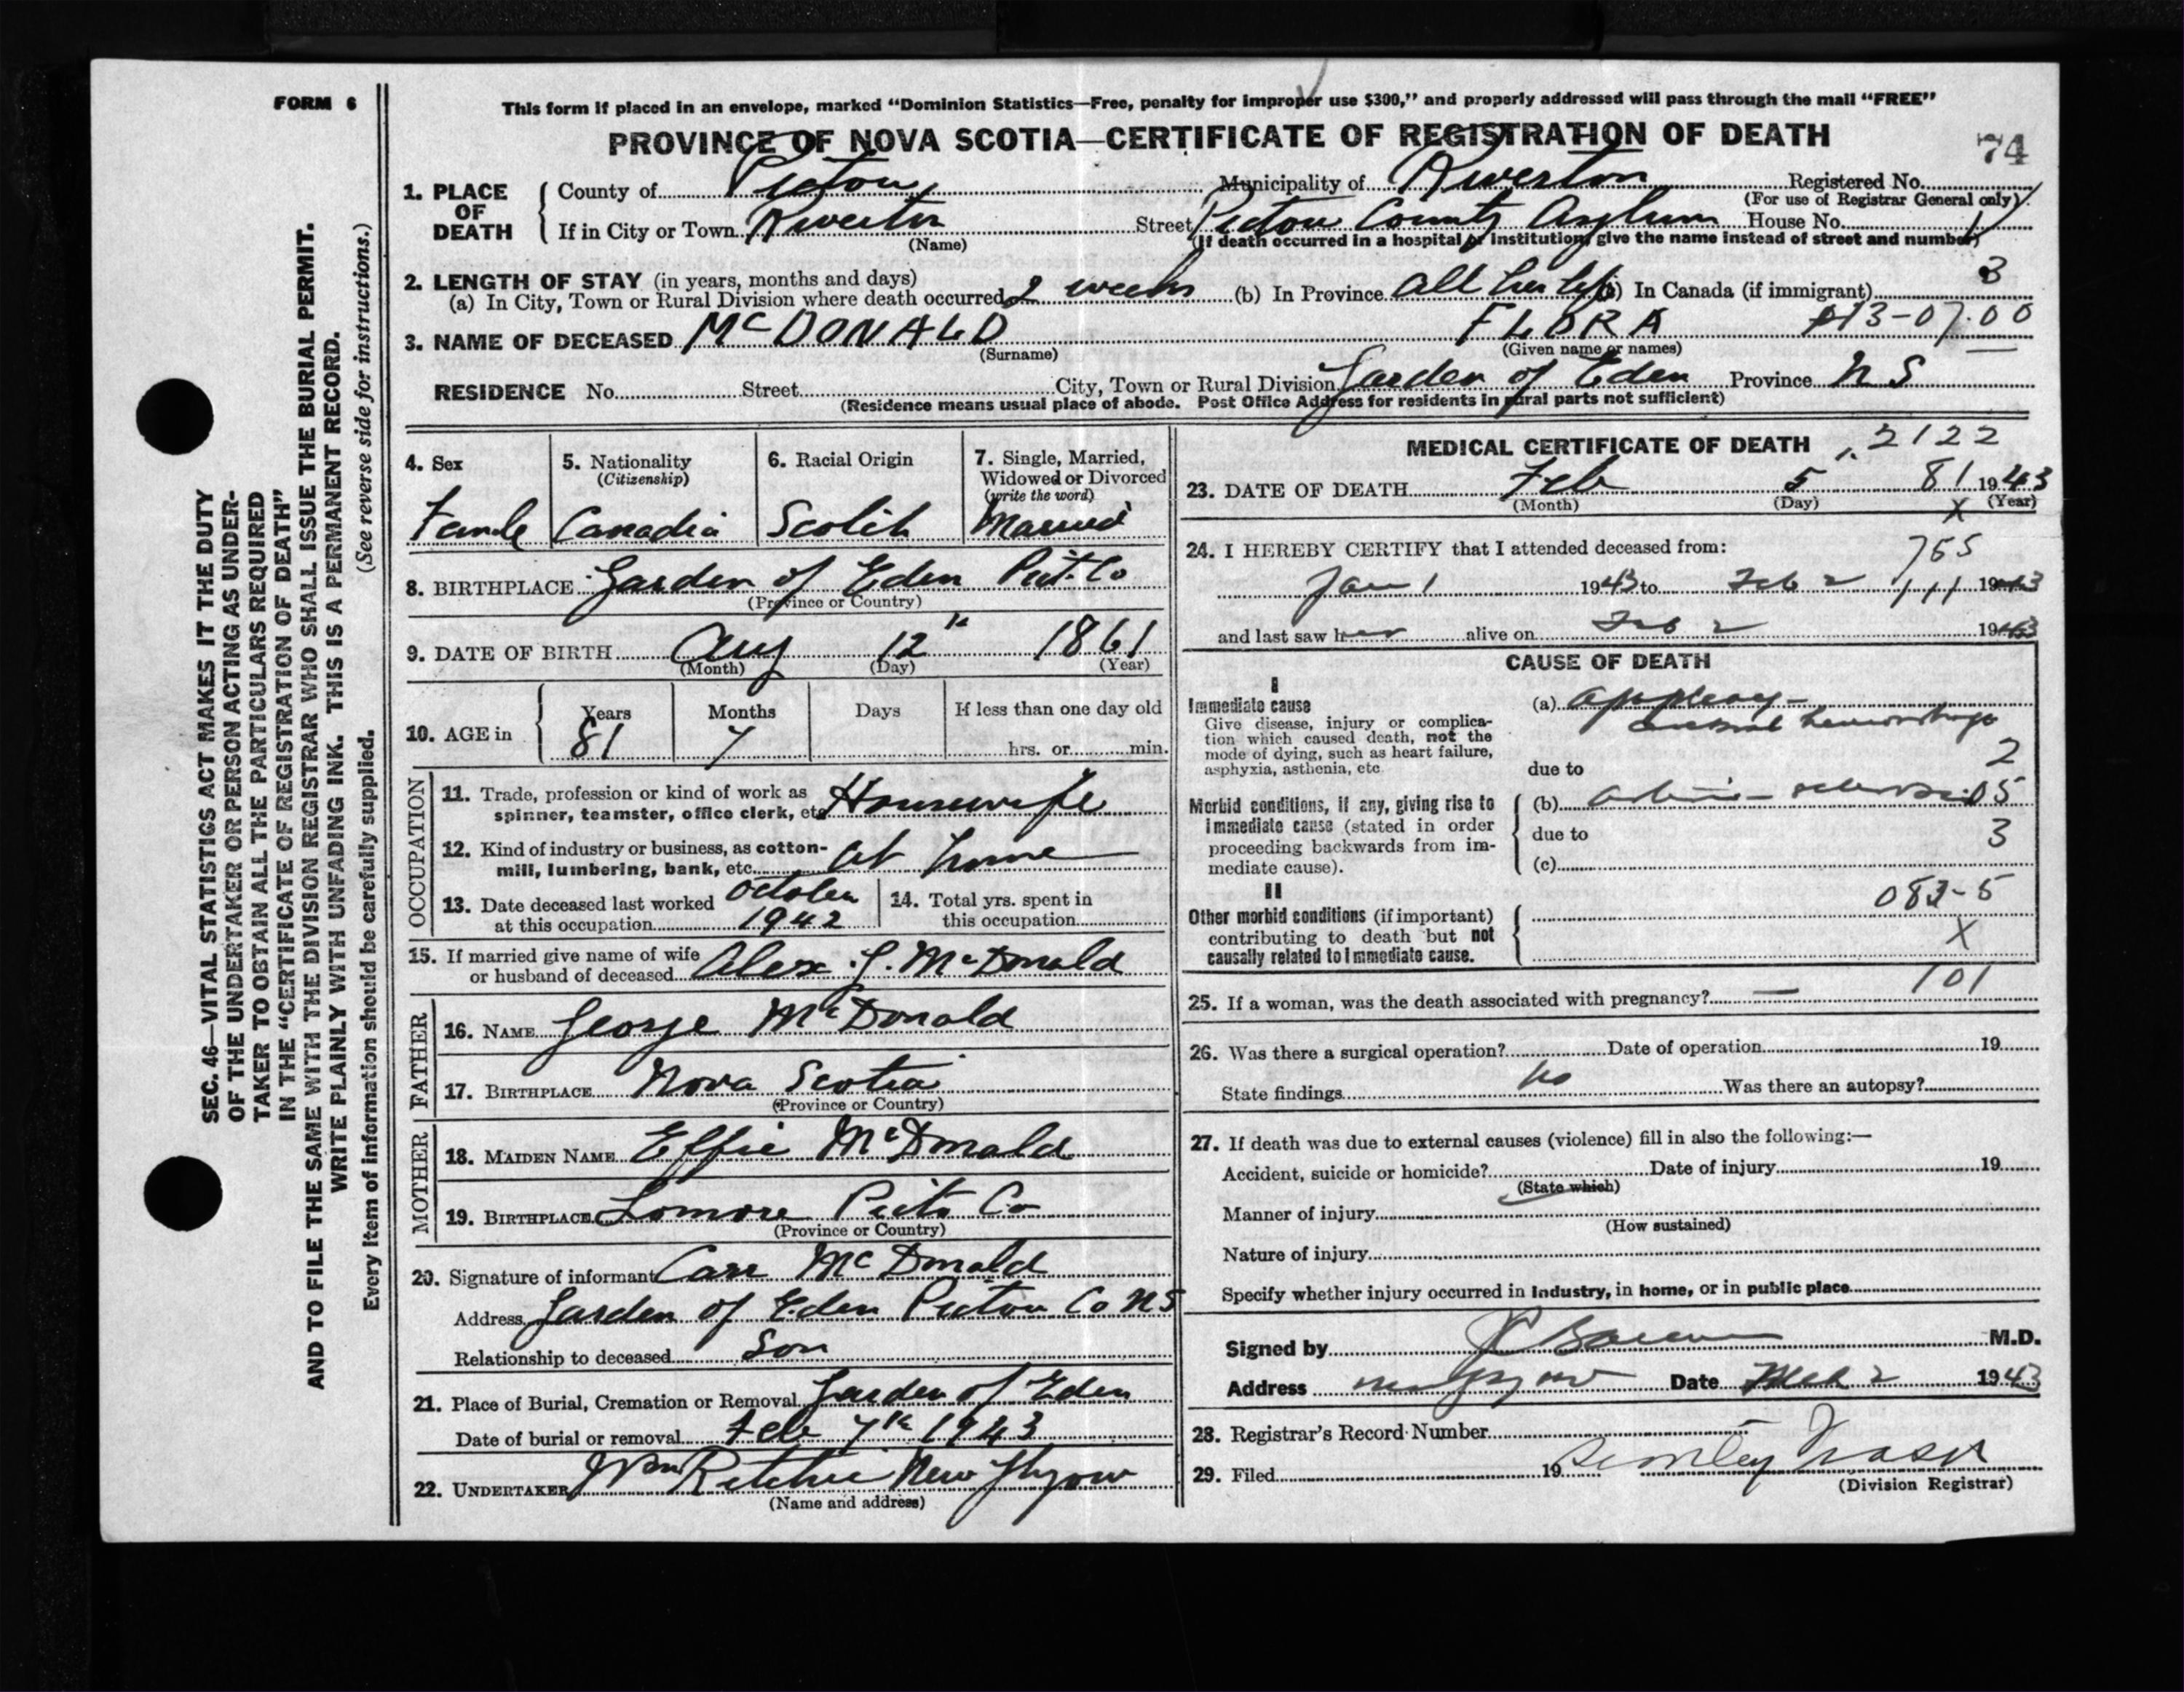 FORM 6
This form if placed in an envelope, marked “Dominion Statistics—Free, penalty for improper use $300,” and properly addressed will pass through the mail “FREE”
PROVINCE OF NOVA SCOTIA—CERTIFICATE OF REGISTRATION OF DEATH
74
SEC. 46—VITAL STATISTICS ACT MAKES IT THE DUTY
OF THE UNDERTAKER OR PERSON ACTING AS UNDER-
TAKER TO OBTAIN ALL THE PARTICULARS REQUIRED
IN THE “CERTIFICATE OF REGISTRATION OF DEATH”
AND TO FILE THE SAME WITH THE DIVISION REGISTRAR WHO SHALL ISSUE THE BURIAL PERMIT.
WRITE PLAINLY WITH UNFADING INK. THIS IS A PERMANENT RECORD.
Every item of information should be carefully supplied. (See reverse side for instructions.)
1. PLACE OF DEATH
County of Pictou Municipality of Riverton Registered No.
(For use of Registrar General only)
If in City or Town Riverton Street Pictou County Asylum House No.
(Name) (If death occurred in a hospital or institution, give the name instead of street and number)
2. LENGTH OF STAY (in years, months and days) 3
(a) In City, Town or Rural Division where death occurred 2 weeks (b) In Province all her life (c) In Canada (if immigrant)
3. NAME OF DECEASED McDONALD FLORA 13-07.00
(Surname) (Given name or names)
RESIDENCE No. Street City, Town or Rural Division Garden of Eden Province N S
(Residence means usual place of abode. Post Office Address for residents in rural parts not sufficient)
4. Sex 5. Nationality (Citizenship) 6. Racial Origin 7. Single, Married, Widowed or Divorced (write the word)
Female Canadia Scotch Married
8. BIRTHPLACE Garden of Eden Pict. Co
(Province or Country)
9. DATE OF BIRTH Aug 12th 1861
(Month) (Day) (Year)
10. AGE in Years Months Days If less than one day old
81 7 hrs. or min.
OCCUPATION
11. Trade, profession or kind of work as
spinner, teamster, office clerk, etc Housewife
12. Kind of industry or business, as cotton-
mill, lumbering, bank, etc. at home
13. Date deceased last worked
at this occupation October 1942
14. Total yrs. spent in
this occupation
15. If married give name of wife
or husband of deceased Alex. J. McDonald
FATHER
16. NAME George McDonald
17. BIRTHPLACE Nova Scotia
(Province or Country)
MOTHER
18. MAIDEN NAME Effie McDonald
19. BIRTHPLACE Lomore Picto Co
(Province or Country)
20. Signature of informant Carr McDonald
Address Garden of Eden Pictou Co N S
Relationship to deceased Son
21. Place of Burial, Cremation or Removal Garden of Eden
Date of burial or removal Feb 7th 1943
22. UNDERTAKER Ritchie New Glasgow
(Name and address)
MEDICAL CERTIFICATE OF DEATH 2122
23. DATE OF DEATH Feb 5 81 1943
(Month) (Day) (Year)
X
24. I HEREBY CERTIFY that I attended deceased from: 765
Jan 1 1943 to Feb 2 111 1943
and last saw her alive on Feb 2 1943
CAUSE OF DEATH
I
Immediate cause
Give disease, injury or complica-
tion which caused death, not the
mode of dying, such as heart failure,
asphyxia, asthenia, etc
(a) apoplexy -
cerebral hemorrhage
2
due to
Morbid conditions, if any, giving rise to
immediate cause (stated in order
proceeding backwards from im-
mediate cause).
(b) arterio - sclerosis 05
due to 3
(c)
II
Other morbid conditions (if important)
contributing to death but not
causally related to immediate cause.
083-5
X
101
25. If a woman, was the death associated with pregnancy? —
26. Was there a surgical operation? Date of operation 19
State findings no Was there an autopsy?
27. If death was due to external causes (violence) fill in also the following:—
Accident, suicide or homicide? Date of injury 19
(State which)
Manner of injury
(How sustained)
Nature of injury
Specify whether injury occurred in industry, in home, or in public place
Signed by M.D.
Address New Glasgow Date Mch 2 1943
28. Registrar's Record Number
29. Filed 19 Fraser
(Division Registrar)